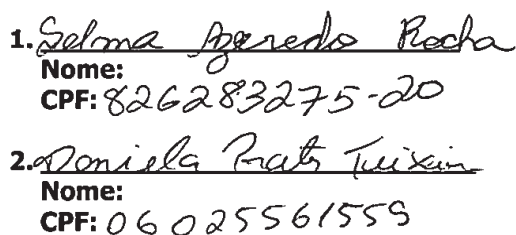 1. Selma Azeredo Rocha
Nome:
CPF: 826283275-20
2. Daniela Prats
Nome:
CPF: 06025561559